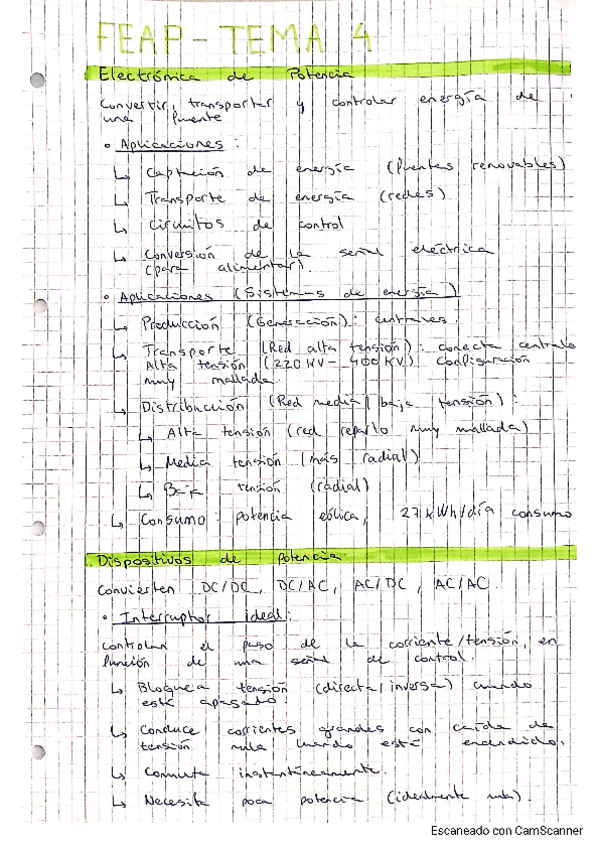 FEAP - TEMA 4
Electrónica de Potencia
Convertir, transportar y controlar energía de
una fuente
• Aplicaciones:
↳ Captación de energía (fuentes renovables)
↳ Transporte de energía (redes)
↳ Circuitos de control
↳ Conversión de la señal eléctrica
(para alimentar).
• Aplicaciones (Sistemas de energía)
↳ Producción (Generación): centrales
↳ Transporte (Red alta tensión): conecta
Alta tensión (220 KV - 400 KV) configuración
muy mallada.
↳ Distribución (Red media/baja tensión):
↳ Alta tensión (red reparto muy mallada)
↳ Media tensión (más radial)
↳ Baja tensión (radial)
↳ Consumo: potencia eólica, 27 kWh/día consumo
Dispositivos de potencia
Convierten DC/DC, DC/AC, AC/DC, AC/AC.
• Interruptor ideal:
Controlan el paso de la corriente/tensión, en
función de una señal de control.
↳ Bloquea tensión (directa/inversa) cuando
está apagado.
↳ Conduce corrientes grandes con caída de
tensión nula cuando está encendido.
↳ Conmuta instantáneamente.
↳ Necesita poca potencia (idealmente nula).
Escaneado con CamScanner